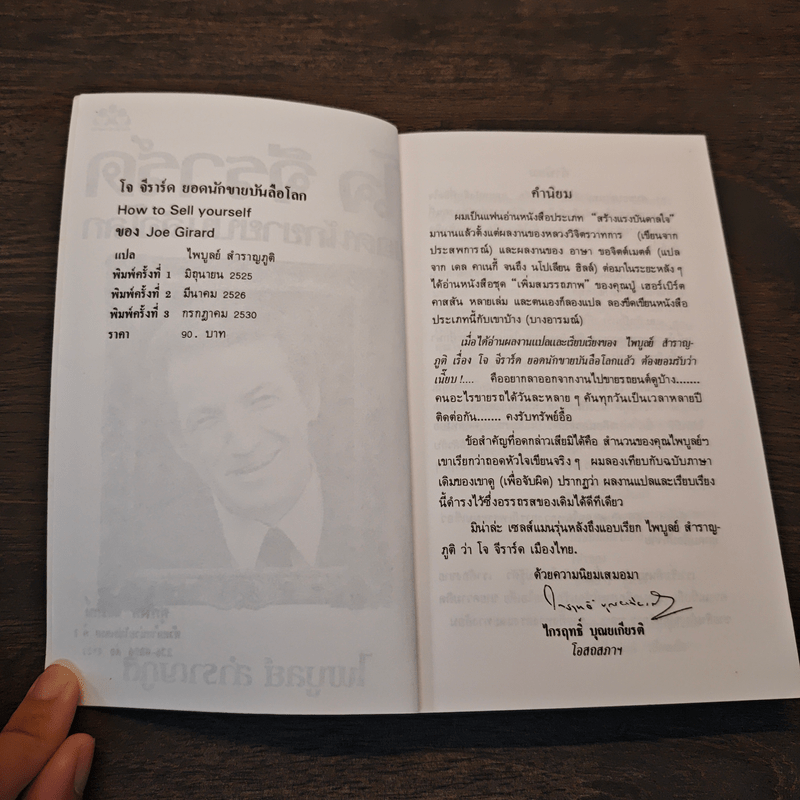 โจ จีราร์ด ยอดนักขายบันลือโลก
How to Sell yourself
ของ Joe Girard
แปล ไพบูลย์ สำราญภูติ
พิมพ์ครั้งที่ 1 มิถุนายน 2525
พิมพ์ครั้งที่ 2 มีนาคม 2526
พิมพ์ครั้งที่ 3 กรกฎาคม 2530
ราคา 90. บาท
คำนิยม
ผมเป็นแฟนอ่านหนังสือประเภท "สร้างแรงบันดาลใจ"
มานานแล้วตั้งแต่ผลงานของหลวงวิจิตรวาทการ (เขียนจาก
ประสพการณ์) และผลงานของ อาษา ขอจิตต์เมตต์ (แปล
จาก เดล คาเนกี้ จนถึง นโปเลียน ฮิลล์) ต่อมาในระยะหลัง ๆ
ได้อ่านหนังสือชุด "เพิ่มสมรรถภาพ" ของคุณปู่ เฮอร์เบิร์ต
คาสสัน หลายเล่ม และตนเองก็ลองแปล ลองขีดเขียนหนังสือ
ประเภทนี้กับเขาบ้าง (บางอารมณ์)
เมื่อได้อ่านผลงานแปลและเรียบเรียงของ ไพบูลย์ สำราญ-
ภูติ เรื่อง โจ จีราร์ด ยอดนักขายบันลือโลกแล้ว ต้องยอมรับว่า
เนี๊ยบ !.... คืออยากลาออกจากงานไปขายรถยนต์ดูบ้าง.......
คนอะไรขายรถได้วันละหลาย ๆ คันทุกวันเป็นเวลาหลายปี
ติดต่อกัน....... คงรับทรัพย์อื้อ
ข้อสำคัญที่อดกล่าวเสียมิได้คือ สำนวนของคุณไพบูลย์ฯ
เขาเรียกว่าถอดหัวใจเขียนจริง ๆ ผมลองเทียบกับฉบับภาษา
เดิมของเขาดู (เพื่อจับผิด) ปรากฏว่า ผลงานแปลและเรียบเรียง
นี้ดำรงไว้ซึ่งอรรถรสของเดิมได้ดีทีเดียว
มิน่าล่ะ เซลส์แมนรุ่นหลังถึงแอบเรียก ไพบูลย์ สำราญ-
ภูติ ว่า โจ จีราร์ด เมืองไทย.
ด้วยความนิยมเสมอมา
ไกรฤทธิ์ บุณยเกียรติ
โอสถสภาฯ